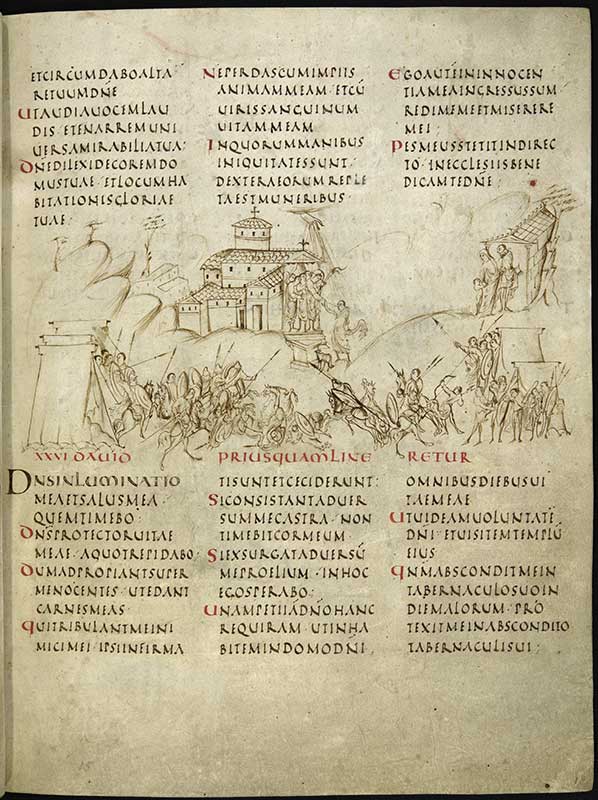 ETCIRCUMDABOALTA
RETUUMDNE
UTAUDIAUOCEMLAU
DIS ETENARREMUNI
UERSAMIRABILIATUA:
DNEDILEXIDECOREMDO
MUSTUAE ETLOCUMHA
BITATIONISGLORIAE
TUAE:
NEPERDASCUMIMPIIS
ANIMAMMEAM ETCU
UIRISSANGUINUM
UITAMMEAM
INQUORUMMANIBUS
INIQUITATESSUNT:
DEXTERAEORUM REPLE
TAESTMUNERIBUS
EGOAUTEININNOCEN
TIAMEAINGRESSUSSUM
REDIMEMEETMISERERE
MEI:
PESMEUSSTETITINDIREC
TO INECCLESIISBENE
DICAMTEDNE:
XXVI DAVID PRIUSQUAMLINE RETUR
DNSINLUMINATIO
MEAETSALUSMEA
QUEMTIMEBO:
DNSPROTECTORUITAE
MEAE AQUOTREPIDABO:
DUMADPROPIANTSUPER
MENOCENTES UTEDANT
CARNESMEAS
QUITRIBULANTMEINI
MICIMEI IPSIINFIRMA
TISUNTETCECIDERUNT:
SICONSISTANTADUER
SUMMECASTRA NON
TIMEBITCORMEUM
SIEXSURGATADUERSU
MEPROELIUM INHOC
EGOSPERABO:
UNAMPETIIADNOHANC
REQUIRAM UTINHA
BITEMINDOMODNI
OMNIBUSDIEBUSUI
TAEMEAE
UTUIDEAMUOLUNTATE
DNI ETUISITEMTEMPLU
EIUS
QNMABSCONDITMEIN
TABERNACULOSUOIN
DIEMALORUM PRO
TEXITMEINABSCONDITO
TABERNACULISUI: